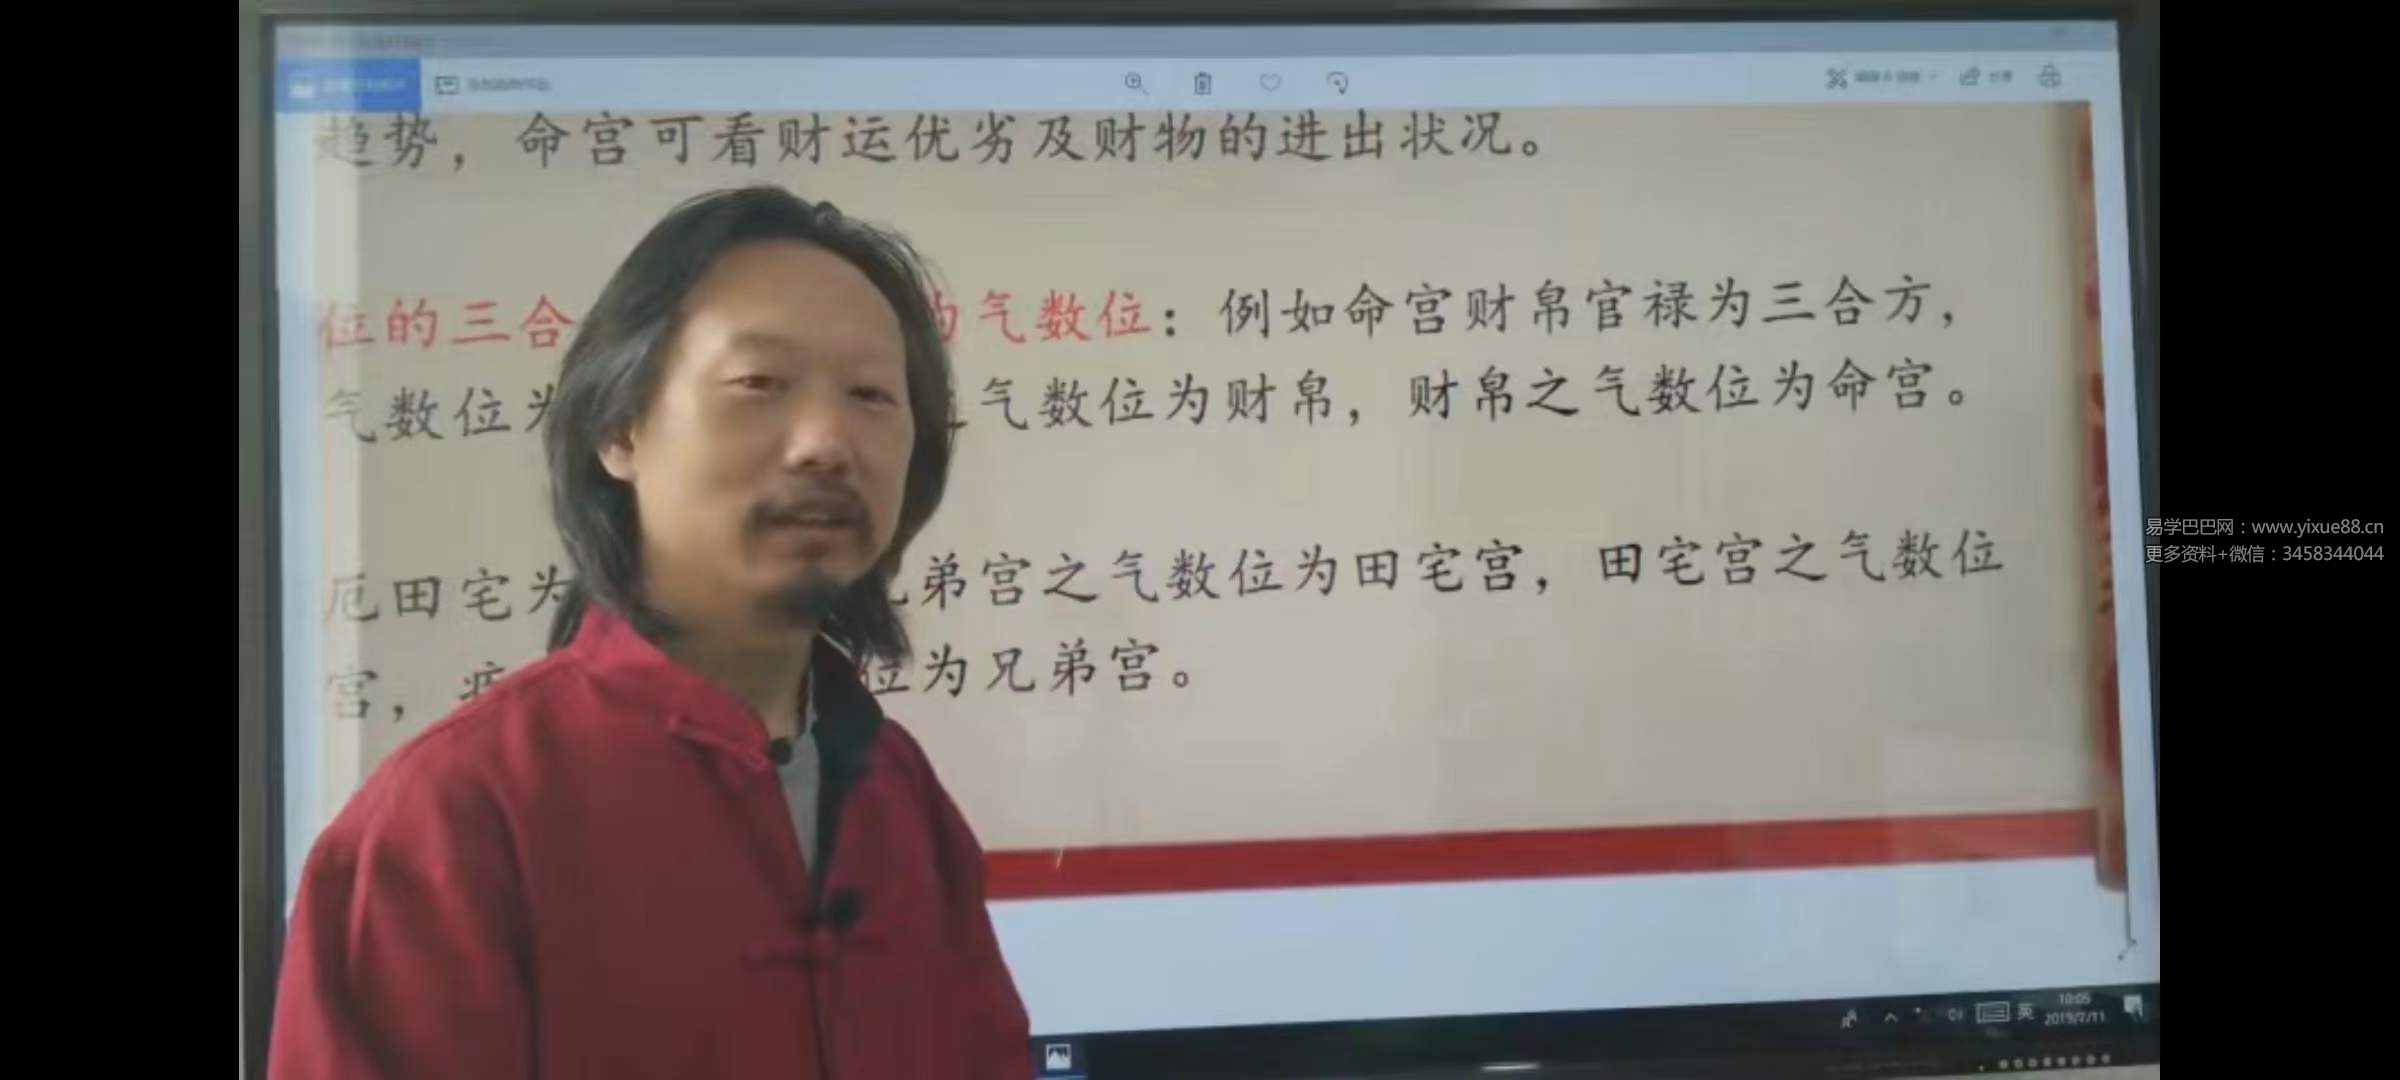 趋势，命宫可看财运优劣及财物的进出状况。
位的三合 的气数位：例如命宫财帛官禄为三合方，
气数位为 之气数位为财帛，财帛之气数位为命宫。
厄田宅为 兄弟宫之气数位为田宅宫，田宅宫之气数位
宫，疾 位为兄弟宫。
易学巴巴网：www.yixue88.cn
更多资料+微信：3458344044
英
10:05
2019/7/11